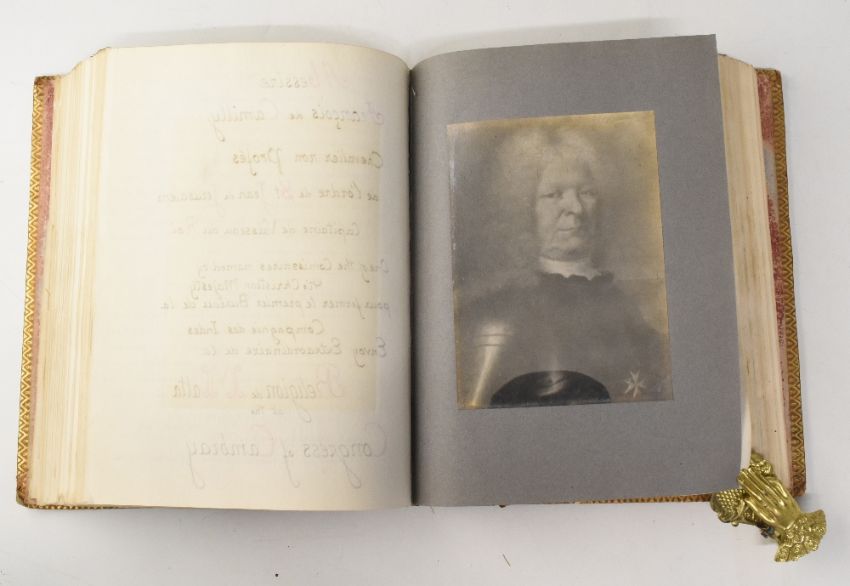 Messire
François de Camilly
Chevalier non Profès
de l'ordre de St Jean de Jerusalem
Capitaine de Vaisseau du Roi
One of the Comissaires named by
His Christian Majesty
pour former le premier Bureau de la
Compagnie des Indes
Envoy Extraordinaire de la
Religion de Malta
at the
Congress of Cambray